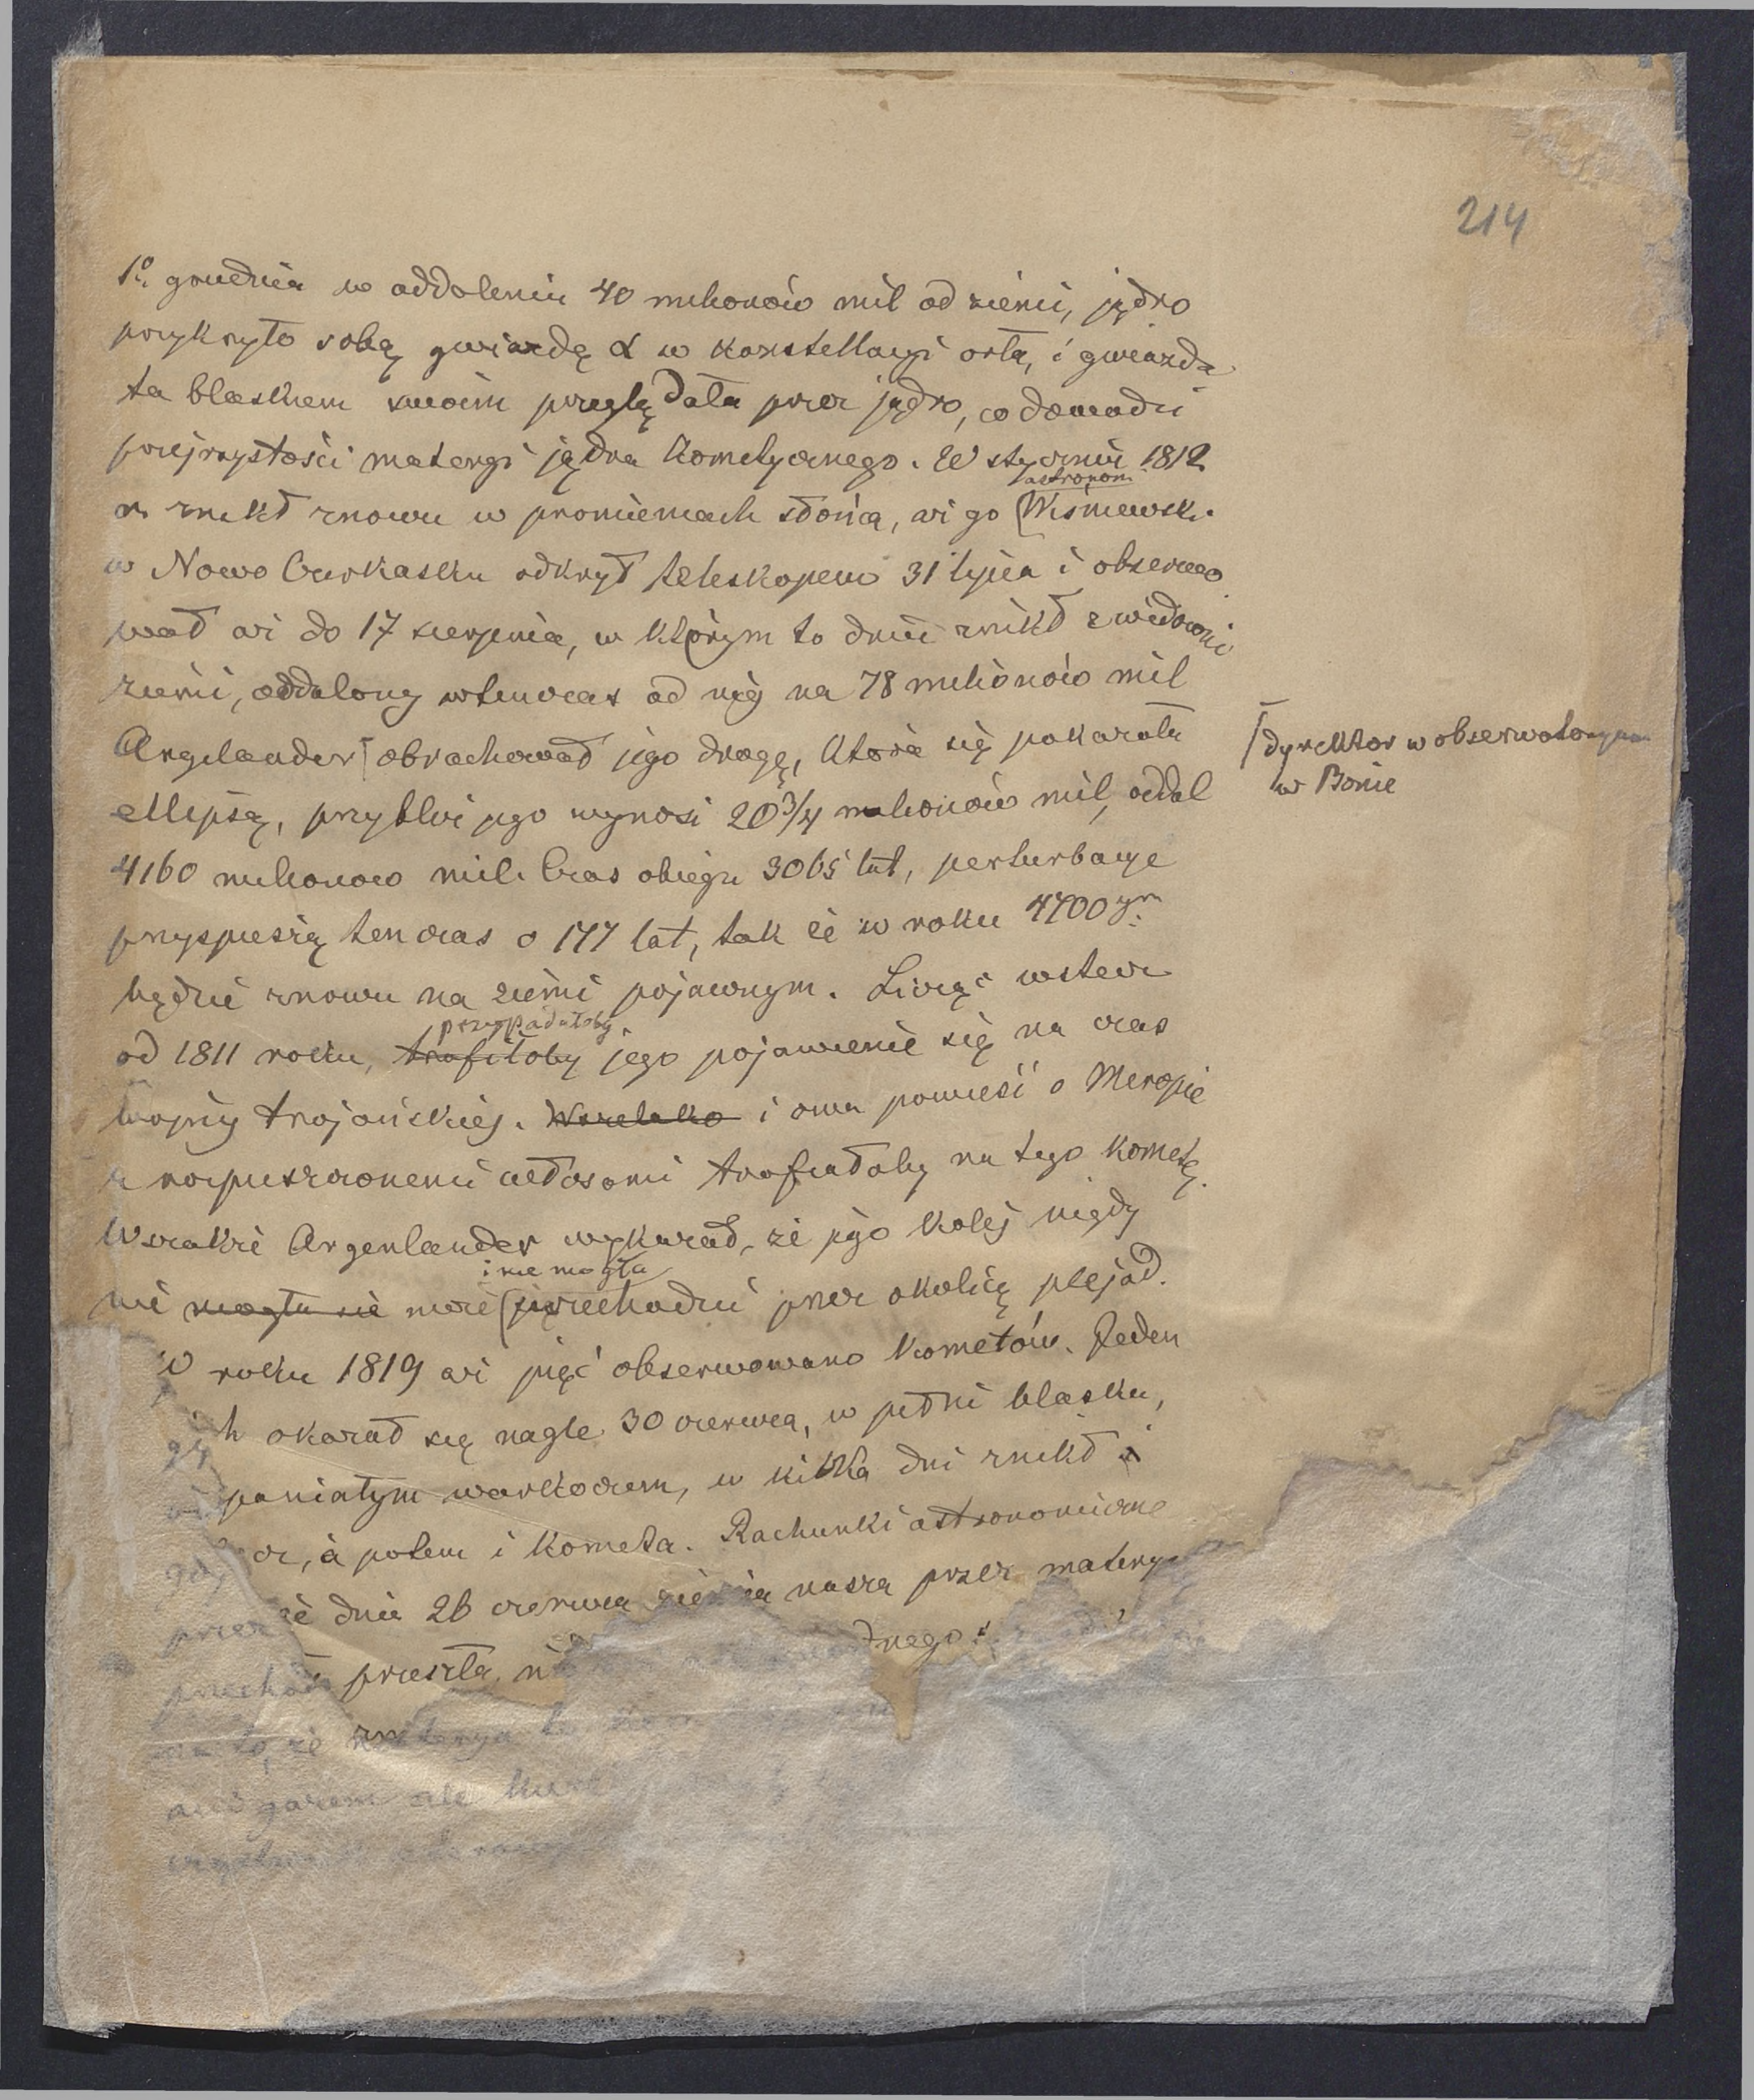 214
1º grudnia w oddaleniu 40 milionów mil od ziemi, jądro
przykryło sobą gwiazdę α w konstellacyi orła, i gwiazda
ta blaskiem swoim przeglądała przez jądro, co dowodzi
przejrzystości materyi jądra kometycznego. W styczniu 1812
r. znikł znowu w promieniach słońca, aż go [astronom Wiśniewski
w Nowo Czerkasku odkrył teleskopem 31 lipca i obserwo
wał aż do 17 sierpnia, w którym to dniu znikł z widowni
ziemi, oddalony wtenczas od niej na 78 milionów mil
Argelander [obrachował jego drogę, która się pokazała
[dyrektor w obserwatoryum
w Bonie
ellipsą, przybliż jego wynosi 20 3/4 milionów mil, oddal
4160 milionów mil. Czas obiegu 3065 lat, perturbacye
przyspieszą ten czas o 177 lat, tak że w roku 4700ym
będzie znowu na ziemi pojawnym. Licząc wstecz
od 1811 roku, trafiłoby przypadałoby jego pojawienie się na czas
wojny trojańskiej. Wszelako i owa powieść o Meropie
z rozpuszczonemi włosami trafiałoby na tego kometę.
Wszakże Argenlander wykazał, że jego kolej nigdy
nie mogła nie może [i nie mogła przechodzić przez okolicę plejad.
W roku 1819 aż pięć obserwowano kometów. Jeden
ch okazał się nagle 30 czerwca, w pełni blasku,
paniatym warkoczem, w kilka dni znikł i
cz, a potem i kometa. Rachunki astronomiczne
że dnia 26 czerwca ziemia nasza przez materyę
przeszła, ni dnego